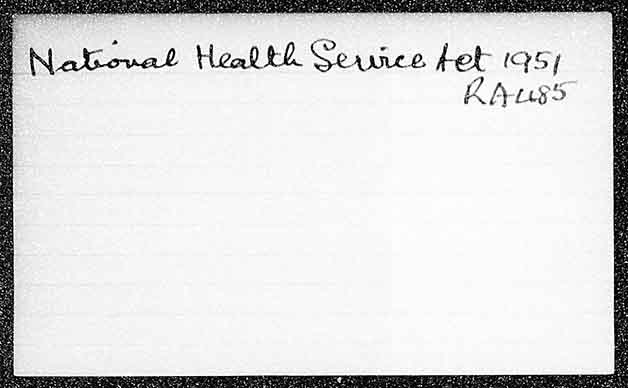 National Health Service Act 1951
RA485